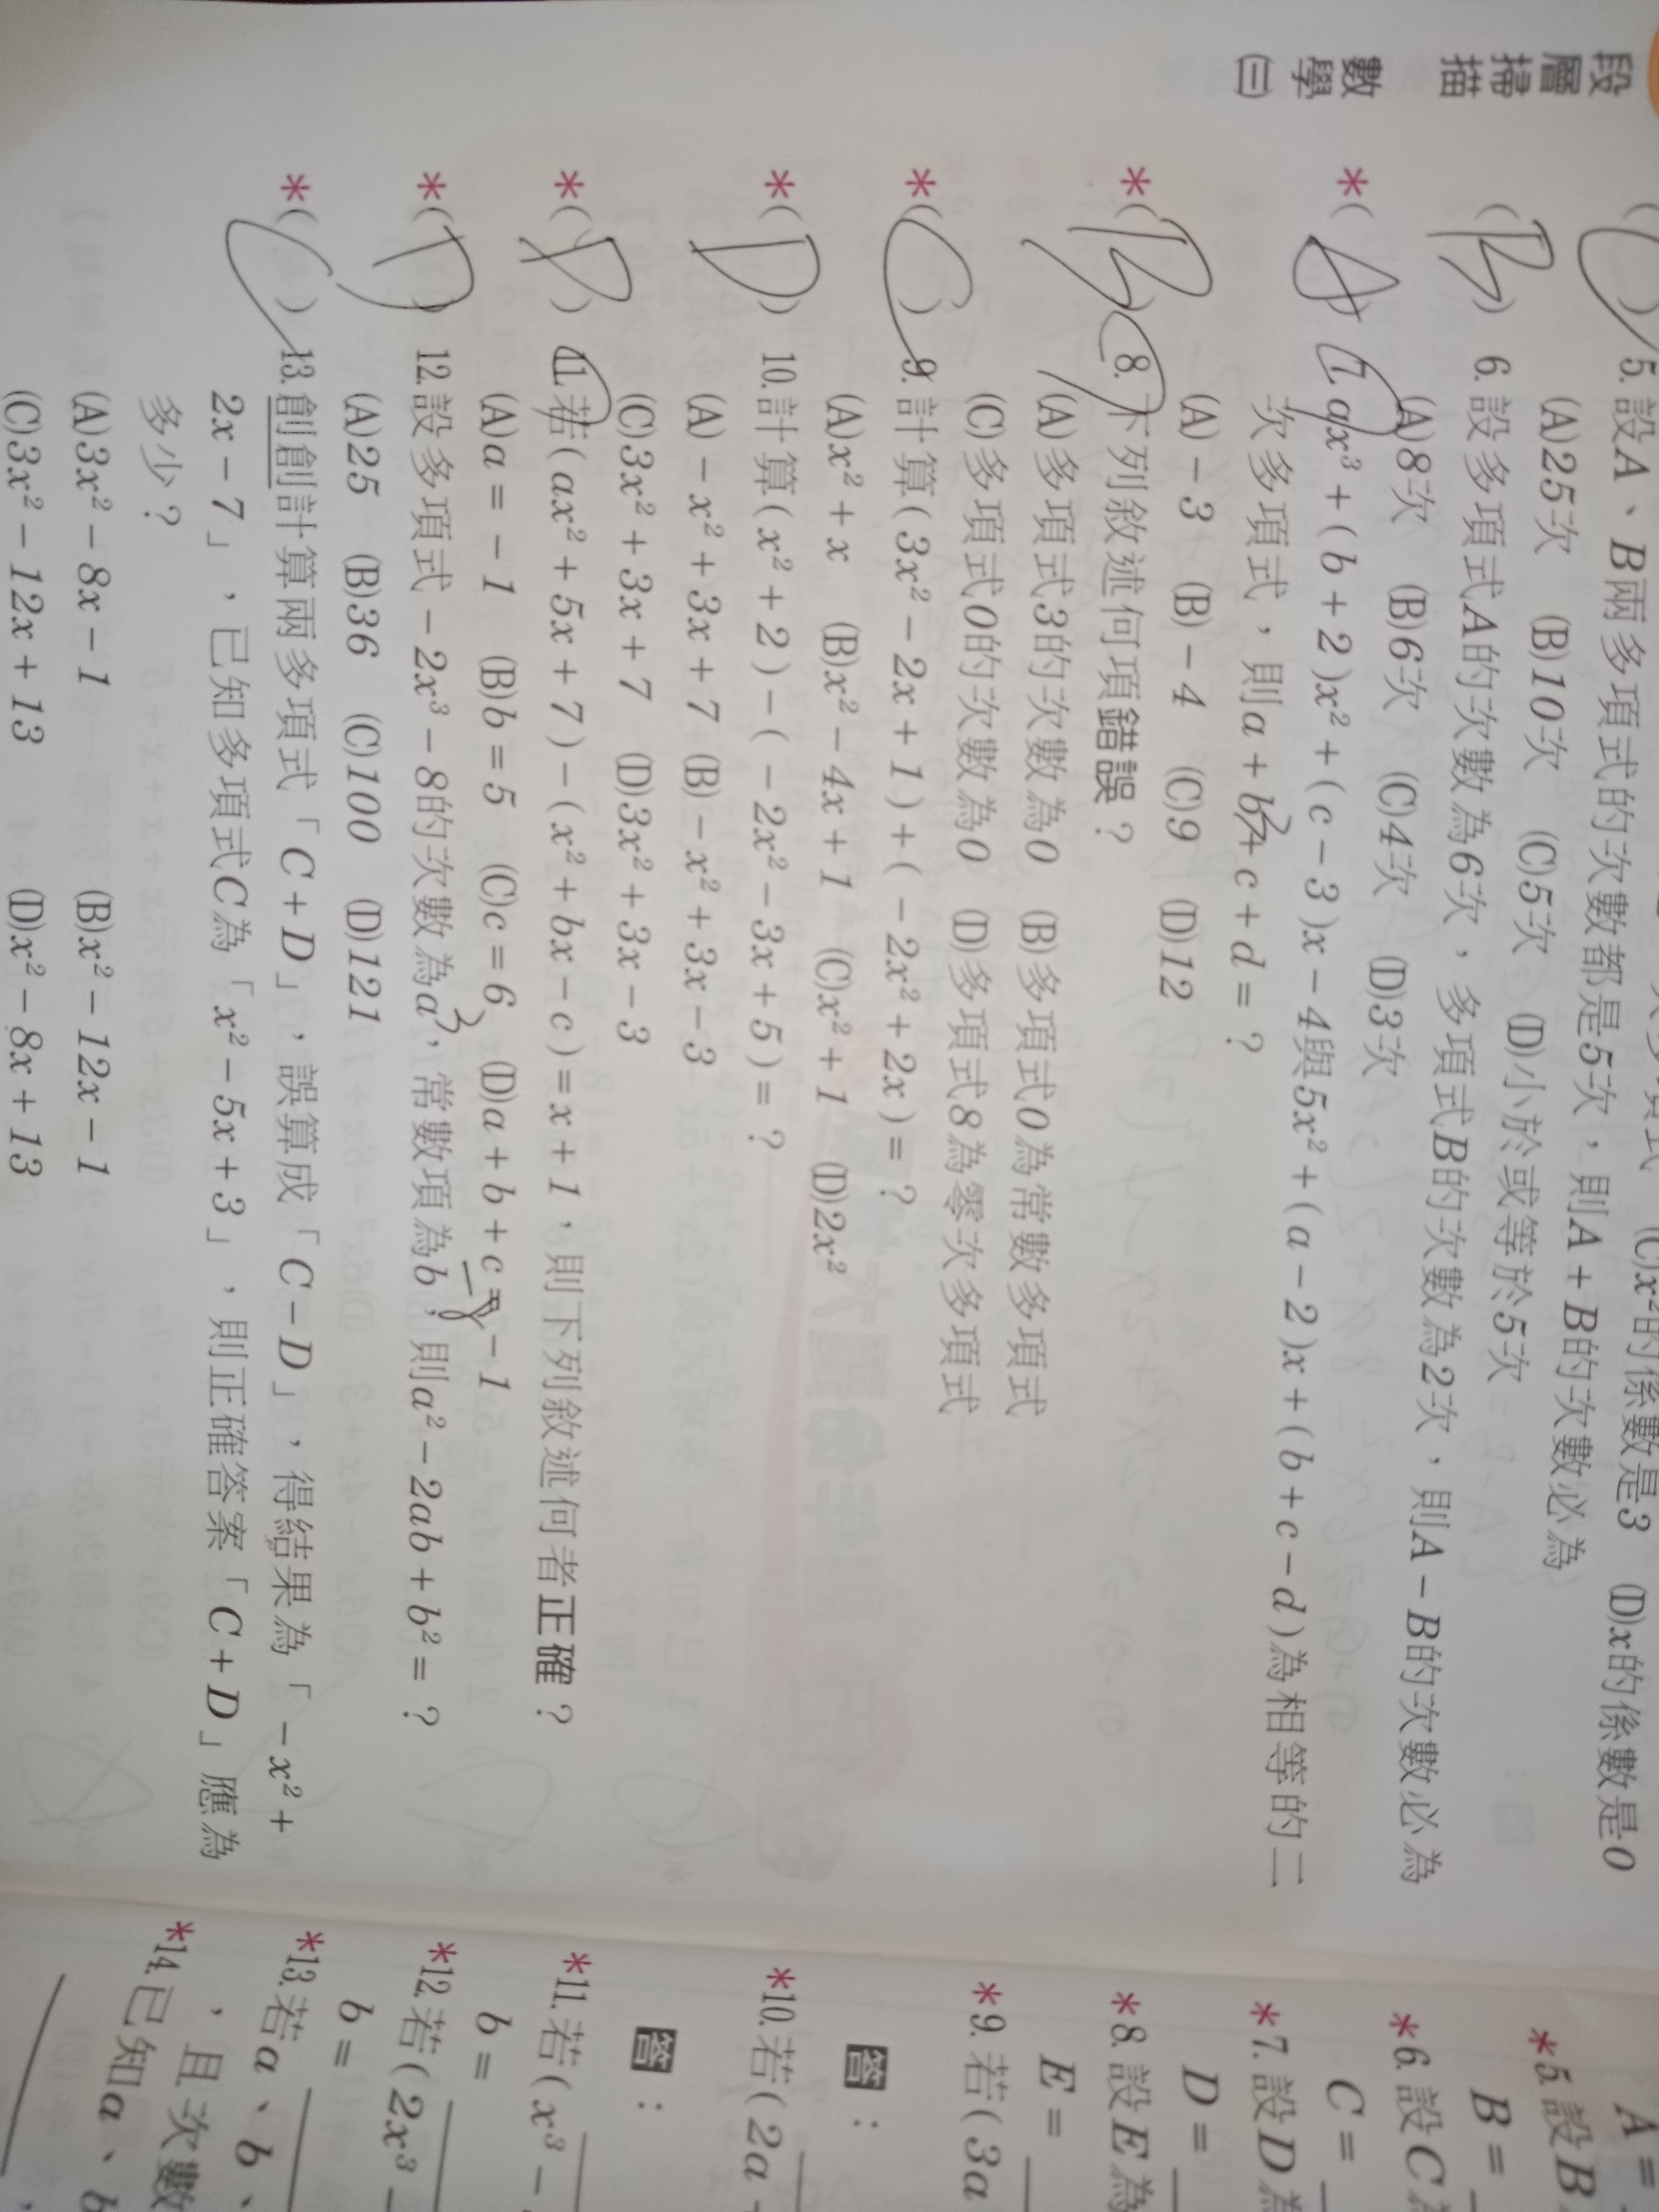 段層掃描 數學(三)
(C)x²的係數是3 (D)x的係數是0
5.設A、B兩多項式的次數都是5次，則A+B的次數必為
(A)25次 (B)10次 (C)5次 (D)小於或等於5次
(B) 6.設多項式A的次數為6次，多項式B的次數為2次，則A−B的次數必為
(A)8次 (B)6次 (C)4次 (D)3次
*(A) 7.ax³+(b+2)x²+(c−3)x−4與5x²+(a−2)x+(b+c−d)為相等的二
次多項式，則a+b+c+d=？
(A)−3 (B)−4 (C)9 (D)12
*(B) 8.下列敘述何項錯誤？
(A)多項式3的次數為0 (B)多項式0為常數多項式
(C)多項式0的次數為0 (D)多項式8為零次多項式
*(C) 9.計算(3x²−2x+1)+(−2x²+2x)=？
(A)x²+x (B)x²−4x+1 (C)x²+1 (D)2x²
*(D) 10.計算(x²+2)−(−2x²−3x+5)=？
(A)−x²+3x+7 (B)−x²+3x−3
(C)3x²+3x+7 (D)3x²+3x−3
*(D) 11.若(ax²+5x+7)−(x²+bx−c)=x+1，則下列敘述何者正確？
(A)a=−1 (B)b=5 (C)c=6 (D)a+b+c=−1
*(D) 12.設多項式−2x³−8的次數為a，常數項為b，則a²−2ab+b²=？
(A)25 (B)36 (C)100 (D)121
*(C) 13.創創計算兩多項式「C+D」，誤算成「C−D」，得結果為「−x²+
2x−7」，已知多項式C為「x²−5x+3」，則正確答案「C+D」應為
多少？
(A)3x²−8x−1 (B)x²−12x−1
(C)3x²−12x+13 (D)x²−8x+13
A=
*5.設B
B=
*6.設C
C=
*7.設D為
D=
*8.設E為
E=
*9.若(3a
答：
*10.若(2a
答：
*11.若(x³−
b=
*12.若(2x³−
b=
*13.若a、b、
，且次數
*14.已知a、b